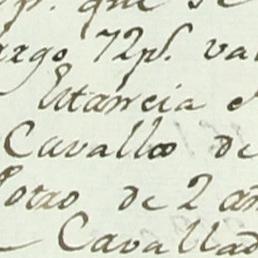 p. que se
argo 72 ps. va
Estancia e
Cavallo de
Potro de 2 añ
Cavallad